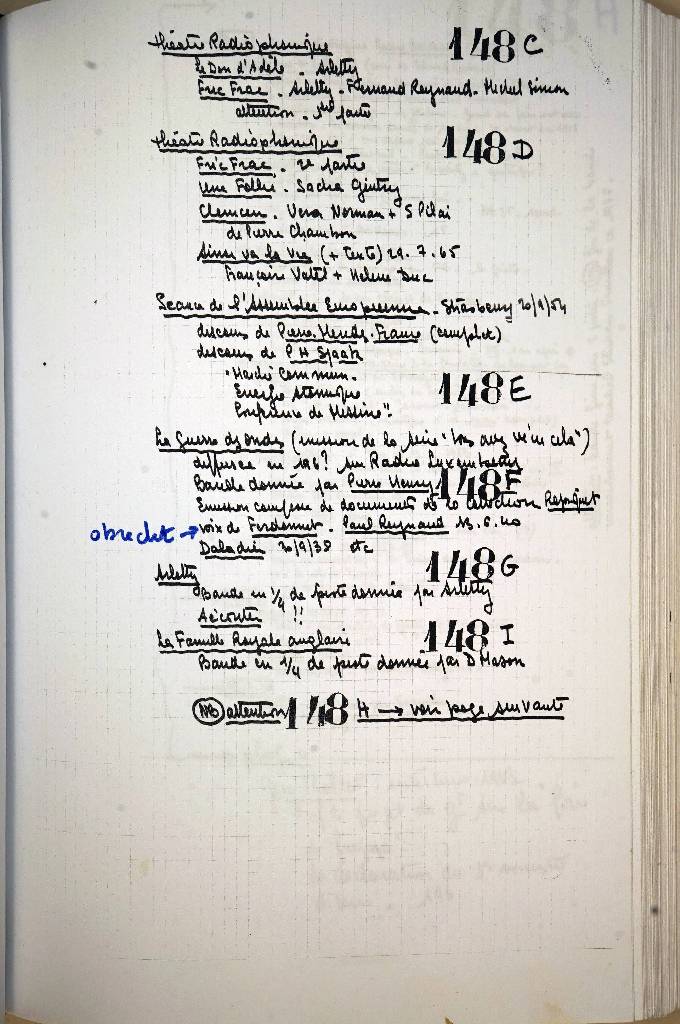 théatre Radiophonique 148 C
Le Don d'Adèle - Arletty
Fric Frac - Arletty - Fernand Raynaud - Michel Simon
attention - 1ère partie
théatre Radiophonique 148 D
Fric Frac - 2e partie
Une Follie - Sacha Guitry
Clemcen - Vera Norman + S Pilai
de Pierre Chambon
Ainsi va la vie (+ texte) 29.7.65
Françoise Vatel + Helene Duc
Seance de l'Assemblée Européenne - Strasbourg 20/9/54
discours de Pierre Mendes-France (complet)
discours de P H Spaak
"Marché Commun -
Energie atomique 148 E
Conférence de Messine"
La Guerre des ondes (emission de la serie "Vous avez vécu cela")
diffusée en 196? sur Radio Luxembourg
Bande donnée par Pierre Henry 148 F
Emission composée de documents de la collection
obrecht → voix de Ferdonnet - Paul Reynaud 13.6.40
Daladier 30/9/38 etc
Arletty 148 G
Bande en 1/4 de piste donnée par Arletty
A écouter !!
La Famille Royale anglaise 148 I
Bande en 1/4 de piste donnée par D Mason
NB attention 148 H → voir page suivante